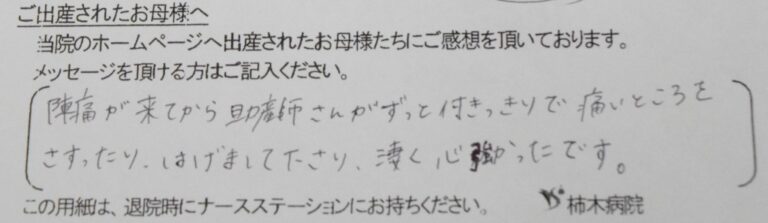 ご出産されたお母様へ
当院のホームページへ出産されたお母様たちにご感想を頂いております。
メッセージを頂ける方はご記入ください。
陣痛が来てから助産師さんがずっと付きっきりで痛いところを
さすったり、はげまして下さり、凄く心強かったです。
この用紙は、退院時にナースステーションにお持ちください。 柿木病院